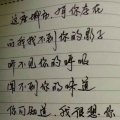 这座城市,有你存在
而我找不到你的影子
听不见你的呼吸
闻不到你的味道
你可知道,我很想你